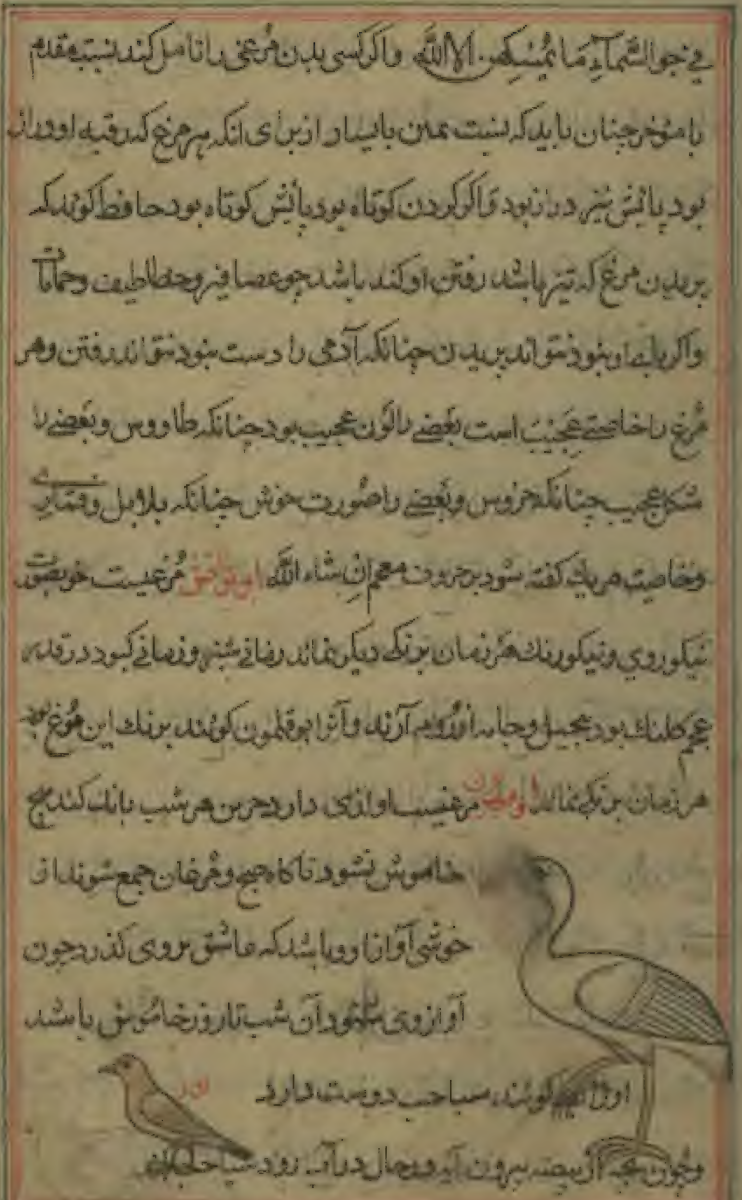 في جو السماء ما يمسكهن الا الله واكر كسى بدن مرغى را تامل كند نسبت مقدم
با موخر چنان يابد كه نسبت يمين با يسار از براى انكه هر مرغ كه رقبه او دراز
بود پائيش نيز دراز بود واكر كردن كوتاه بود پائيش كوتاه بود جاحظ كويد كه
پريدن مرغ كه تيز باشد رفتن او كند باشد چو عصافير وخطاطيف وحمامات
واكر پاى او نبود نتواند پريدن چنانكه آدمى را دست نبود نتواند رفتن وهر
مرغ را خاصيتى عجيب است بعضے را لون عجيب بود چنانكه طاووس وبعضے را
شكل عجيب چنانكه خروس وبعضے را صورت خوش چنانكه بلابل وقمارى
وخاصيت هر يك كفته شود بر حروف معجم ان شاء الله ابو براقش مرغيست خوبصورت
نيكوروي ونيكورنك هر زمان برنكى ديكر نمايد زمانى سرخ وزمانے كبود در قد
حجم كلنك بود وجامه از روم آرند وآنرا بوقلمون كويند برنك اين مرغ بود
هر زمان برنكى نمايد مرغيست آوازى دارد حزين هر شب بانك كند هيچ
خاموش نشود تا كاه صبح ومرغان جمع شوند از
خوشى آواز او وباشد كه عاشق بروى كذرد چون
آواز وى شنود آن شب تا روز خاموش باشد
اوز كويند سباحت دوست دارد
وچون بچه از بيضه بيرون آيد در حال در آب رود